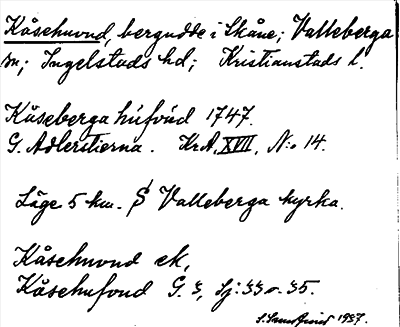 Kåsehuvud, bergudde i Skåne; Valleberga
sn; Ingelstads hd; Kristianstads l.
Kåseberga húfvúd 1747.
G. Adlerstierna. KrA, XVII, N:o 14.
Läge 5 km. S Valleberga kyrka.
Kåsehuvud ek,
Kåsehufvud G. 3, Sj: 33 o. 35.
1937.